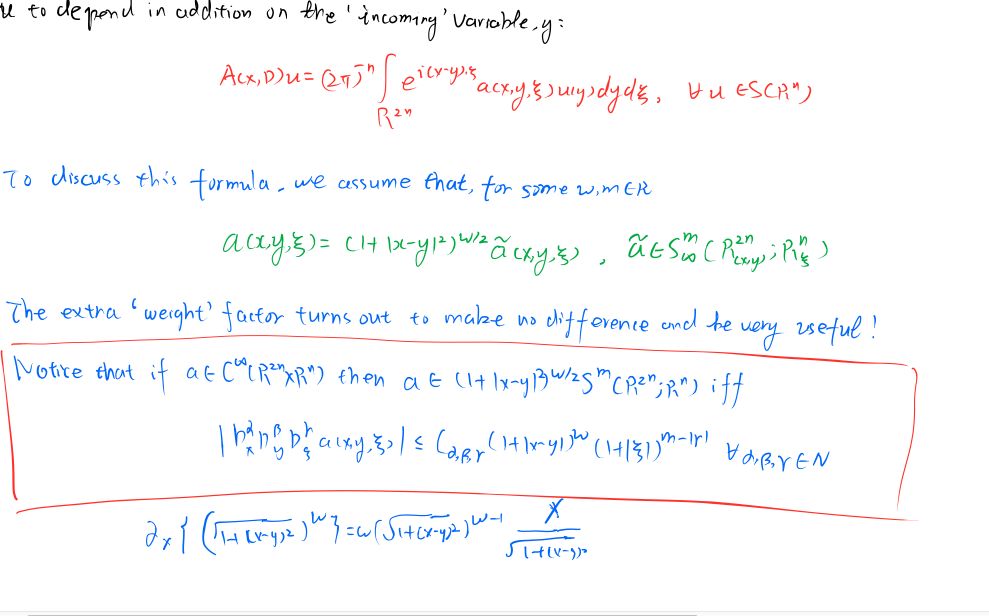 u to depend in addition on the 'incoming' variable, y:
A(x,D)u = (2π)^{-n} ∫_{R^{2n}} e^{i(x-y)·ξ} a(x,y,ξ) u(y) dy dξ, ∀ u ∈ S(R^n)
To discuss this formula, we assume that, for some w, m ∈ R
a(x,y,ξ) = (1+|x-y|²)^{w/2} ã(x,y,ξ), ã ∈ S^m_∞(R^{2n}_{(x,y)}; R^n_ξ)
The extra 'weight' factor turns out to make no difference and be very useful!
Notice that if a ∈ C^∞(R^{2n}×R^n) then a ∈ (1+|x-y|²)^{w/2} S^m(R^{2n}; R^n) iff
|D^α_x D^β_y D^γ_ξ a(x,y,ξ)| ≤ C_{α,β,γ} (1+|x-y|)^w (1+|ξ|)^{m-|γ|} ∀ α,β,γ ∈ N
∂_x { (√1+(x-y)²)^w } = w(√1+(x-y)²)^{w-1} x/√1+(x-y)²